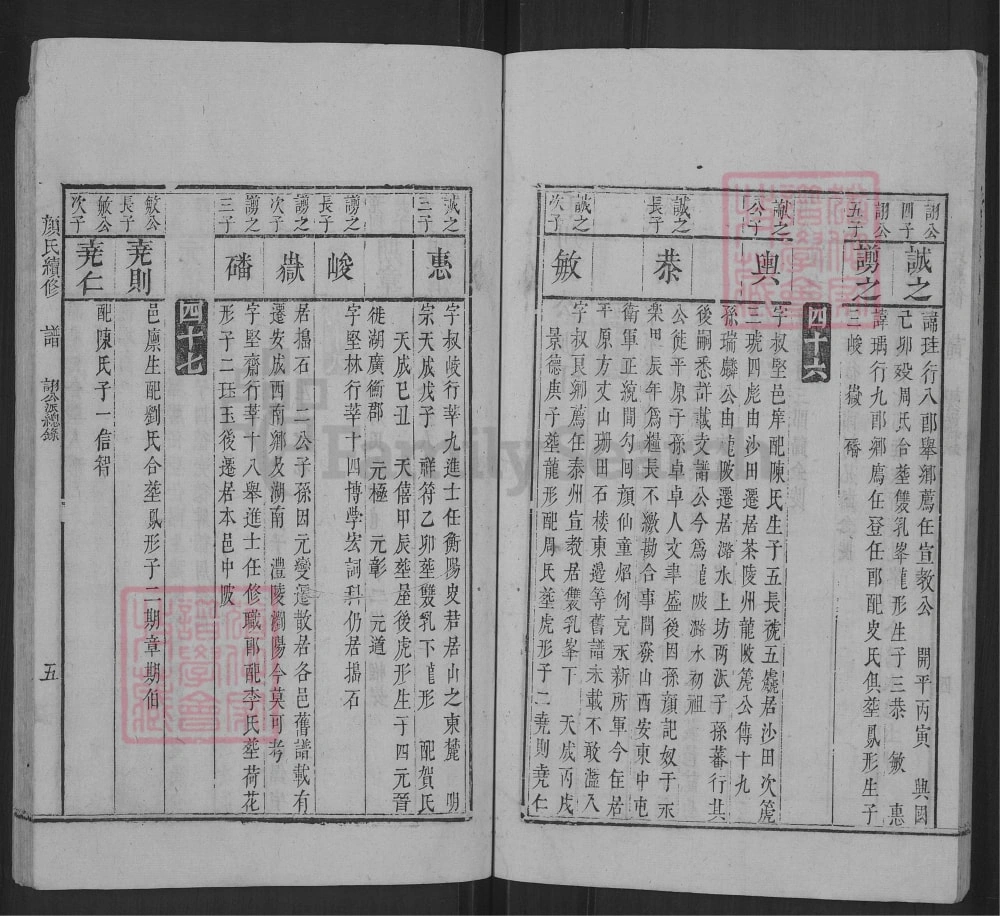 詡公四子
誠之
諱珪行八郎舉鄉薦任宣教公　開平丙寅　與國
己卯殁周氏合塟雙乳峯龍形生子三恭　敏　惠
詡公五子
謭之
諱瑀行九郎鄉薦任登任郎配史氏俱塟鳳形生子
三峻　嶽　磻
四十六
公子
輿
字叔堅邑庠配陳氏生子五長彪五處居沙田次箎
三琥四彪由沙田遷居茶陵州龍陂箎公傳十九
孫瑞麟公由龍陂遷居潞水上坊两派子孫蕃行其
後嗣悉許誠支譜公今爲龍陂潞水初祖
誠之長子
恭
公徙平原子孫卓卓人文聿盛後因孫顔記奴于永
樂甲辰年爲糧長不繳勘合事問發山西安東中屯
衛軍正統間勾同顔仙童焰例克永新所軍今在居
平原方丈山珊田石楼東邊等舊譜未載不敢濫入
誠之次子
敏
字叔良鄉薦任泰州宣教居䨇乳峯下　天成丙戌
景德庚子塟龍形配周氏塟虎形子二尭則尭仁
誠之三子
惠
字叔岐行莘九進士任衡陽史君居山之東麓　明
宗天成戊子　祥符乙卯塟䨇乳下龍形　配賀氏
天成己丑　天僖甲辰塟屋後虎形生子四元晉
徙湖廣衡郡　元極　元彰　元道
謭之長子
峻
字堅林行莘十四博學宏詞科仍居搨石
謭之次子
嶽
居搨石　二公子孫因元變遷散居各邑舊譜載有
遷安成西南鄉及湖南　澧陵瀏陽今莫可考
謭之三子
磻
字堅齋行莘十八舉進士任修職郎配李氏塟荷花
形子二珏玉後遷居本邑中陂
四十七
敏公長子
尭則
邑廪生配劉氏合塟鳳形子二期章期伯
敏公次子
尭仁
配陳氏子一信智
顔氏續修　譜　詡公派總錄　五